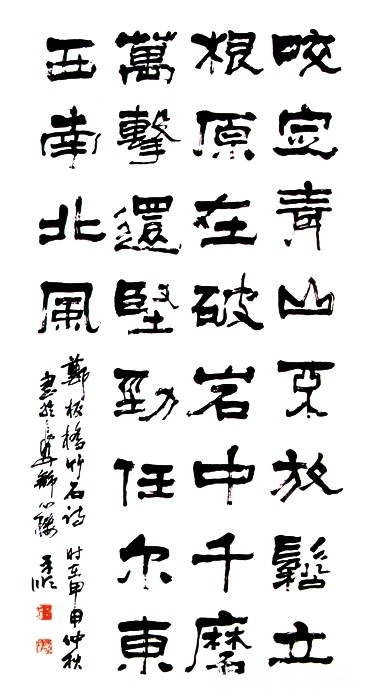 咬定青山不放鬆立
根原在破岩中千磨
萬擊還堅勁任尔東
西南北風
鄭板橋竹石詩 时在甲申仲秋
書於